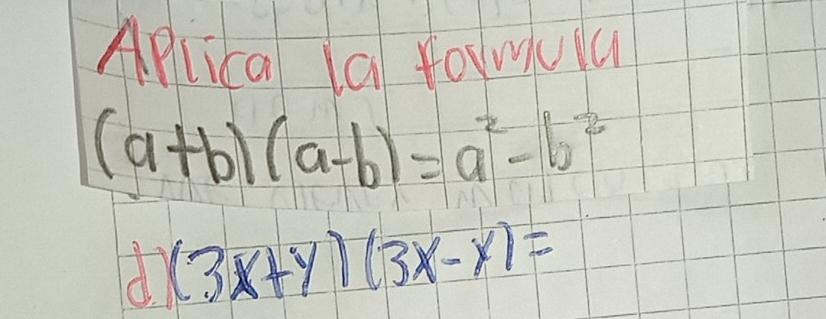 Aplica la formula
(a+b)(a-b)=a²-b²
d)(3x+y)(3x-y)=